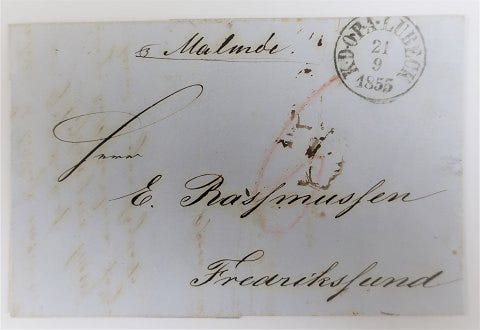 p Malmöe.
K·D·O·P·A·LÜBECK
21
9
1855
Herrn
E. Rassmussen
Fredrikssund